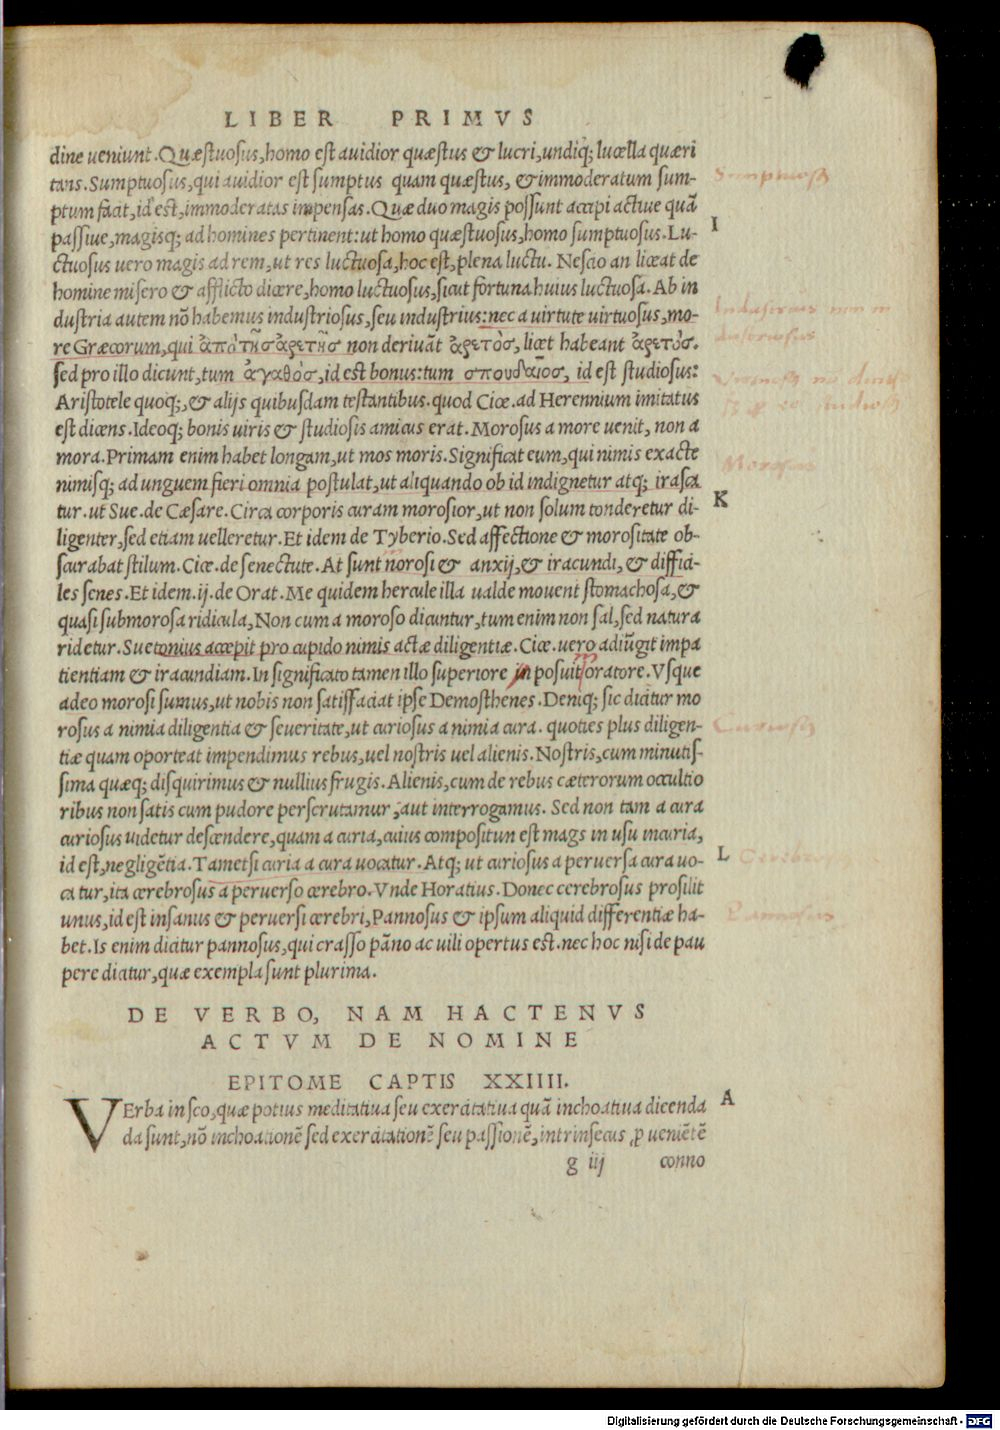 LIBER PRIMVS
dine ueniunt. Quæstuosus, homo est auidior quæstus & lucri, undiq; lucella quæri
tans. Sumptuosus, qui auidior est sumptus quam quæstus, & immoderatum sum-
ptum facit, id est, immoderatas impensas. Quæ duo magis possunt accipi actiue quã
passiue, magisq; ad homines pertinent: ut homo quæstuosus, homo sumptuosus. Lu-
ctuosus uero magis ad rem, ut res luctuosa, hoc est, plena luctu. Nescio an liceat de
homine misero & afflicto dicere, homo luctuosus, sicut fortuna huius luctuosa. Ab in
dustria autem nõ habemus industriosus, seu industrius: nec a uirtute uirtuosus, mo-
re Græcorum, qui ἀπὸ τῆς ἀρετῆς non deriuãt ἀρετὸς, licet habeant ἀρετὸς.
sed pro illo dicunt, tum ἀγαθὸς, id est bonus: tum σπουδαῖος, id est studiosus:
Aristotele quoq;, & alijs quibusdam testantibus. quod Cice. ad Herennium imitatus
est dicens. Ideoq; bonis uiris & studiosis amicus erat. Morosus a more uenit, non a
mora. Primam enim habet longam, ut mos moris. Significat eum, qui nimis exacte
nimisq; ad unguem fieri omnia postulat, ut aliquando ob id indignetur atq; irasca
tur. ut Sue. de Cæsare. Circa corporis curam morosior, ut non solum tonderetur di-
ligenter, sed etiam uelleretur. Et idem de Tyberio. Sed affectione & morositate ob-
scurabat stilum. Cice. de senectute. At sunt norosi & anxij, & iracundi, & diffici-
les senes. Et idem .ij. de Orat. Me quidem hercule illa ualde mouent stomachosa, &
quasi submorosa ridicula, Non cum a moroso dicuntur, tum enim non sal, sed natura
ridetur. Suetonius accepit pro cupido nimis actæ diligentiæ. Cice. uero adiũgit impa
tientiam & iracundiam. In significato tamen illo superiore in posuit oratore. Vsque
adeo morosi sumus, ut nobis non satisfaciat ipse Demosthenes. Deniq; sic dicitur mo
rosus a nimia diligentia & seueritate, ut curiosus a nimia cura. quoties plus diligen-
tiæ quam oporteat impendimus rebus, uel nostris uel alienis. Nostris, cum minutis-
sima quæq; disquirimus & nullius frugis. Alienis, cum de rebus cæterorum occultio
ribus non satis cum pudore perscrutamur, aut interrogamus. Sed non tam a cura
curiosus uidetur descendere, quam a curia, cuius compositun est mags in usu incuria,
id est, negligẽtia. Tametsi curia a cura uocatur. Atq; ut curiosus a peruersa cura uo-
ca tur, ita cerebrosus a peruerso cerebro. Vnde Horatius. Donec cerebrosus prosilit
unus, id est insanus & peruersi cerebri, Pannosus & ipsum aliquid differentiæ ha-
bet. Is enim dicitur pannosus, qui crasso pãno ac uili opertus est. nec hoc nisi de pau
pere dicitur, quæ exempla sunt plurima.
DE VERBO, NAM HACTENVS
ACTVM DE NOMINE
EPITOME CAPTIS XXIIII.
VErba in sco, quæ potius meditatiua seu exercitatiua quã inchoatiua dicenda
da sunt, nõ inchoationẽ sed exercitationẽ seu passionẽ, intrinsecus ꝓueniẽtẽ
g iij conno
I
K
L
A
Sumptuosus
Morosus
Curiosus
Pannosus
Digitalisierung gefördert durch die Deutsche Forschungsgemeinschaft - DFG